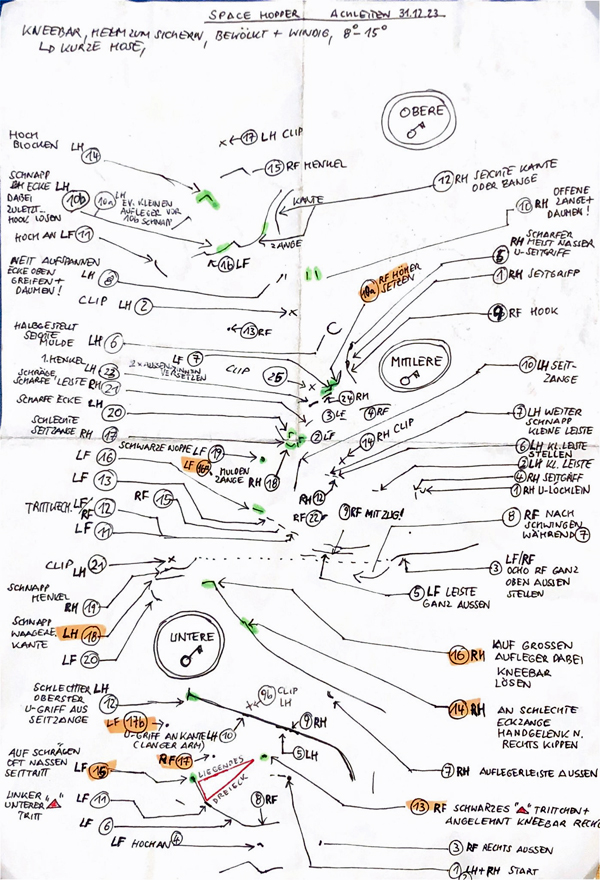 SPACE HOPPER ACHLEITEN 31.12.23
KNEEBAR, HELM ZUM SICHERN, BEWÖLKT + WINDIG, 8°-15°
LD KURZE HOSE,
OBERE
17 LH CLIP
HOCH
BLOCKEN LH
14
15 RF HENKEL
12 RH SEICHTE KANTE
ODER ZANGE
SCHNAPP
RH ECKE LH
DABEI
ZULETZT
HOOK LÖSEN
10b
10a LH
EV. KLEINEN
AUFLEGER VOR
10b SCHNAPP
KANTE
ZANGE
10 RH
OFFENE
ZANGE +
DAUMEN!
HOCH AN LF 11
16 LF
SCHARFER
RH MEIST NASSER
U-SEITGRIFF
WEIT AUFSPANNEN
ECKE OBEN
GREIFEN +
DAUMEN!
LH 8
10a RF HÖHER
SETZEN
1 RH SEITGRIFF
CLIP LH 2
13 RF
RF HOOK
HALBGESTELLT
SEICHTE
MULDE
LH 6
LF 7
MITTLERE
1. HENKEL LH 23
2 x AUSSEN + INNEN
VERSETZEN
CLIP 25
10 LH SEIT-
ZANGE
SCHRÄGE,
SCHARFE LEISTE RH 21
24 RH
3 LF
4 RF
SCHARFE ECKE LH
20
7 LH WEITER
SCHNAPP
KLEINE LEISTE
SCHLECHTE
SEITZANGE
RH 17
2 LF
14 RH CLIP
6 LH KL. LEISTE
STELLEN
SCHWARZE NOPPE LF 19
LF 16
LF 16a
MULDEN
ZANGE RH 18
2 LH KL. LEISTE
4 RH SEITGRIFF
LF 13
RH 12
1 RH U-LOCHLEIN
RF 15
TRITTWECH. LF/RF 12
RF 22
9 RF MIT ZUG!
8 RF NACH
SCHWINGEN
WÄHREND 7
LF 11
CLIP LH 21
3 LF/RF
OCHO RF GANZ
OBEN AUSSEN
STELLEN
SCHNAPP
HENKEL
RH 19
5 LF LEISTE
GANZ AUSSEN
SCHNAPP
WAAGERE.
KANTE
LH 18
UNTERE
16 RH AUF GROSSEN
AUFLEGER DABEI
KNEEBAR
LÖSEN
LF 20
SCHLECHTER LH
OBERSTER
U-GRIFF AUS
SEITZANGE
12
9b CLIP
LH
14 RH AN SCHLECHTE
ECKZANGE
HANDGELENK N.
RECHTS KIPPEN
LF 17b
9 RH
U-GRIFF AN KANTE LH 10
(LANGER ARM)
5 LH
AUF SCHRÄGEN
OFT NASSEN
SEITTRITT
LF 15
RF 17
7 RH AUFLEGERLEISTE AUSSEN
LIEGENDES
DREIECK
LINKER
UNTERER "▲"
TRITT
LF 11
8 RF
13 RF SCHWARZES "▲" TRITTCHEN +
ANGELEHNT KNEEBAR RECH
LF 6
LF HOCH AN 4
3 RF RECHTS AUSSEN
1 LH+RH START
2